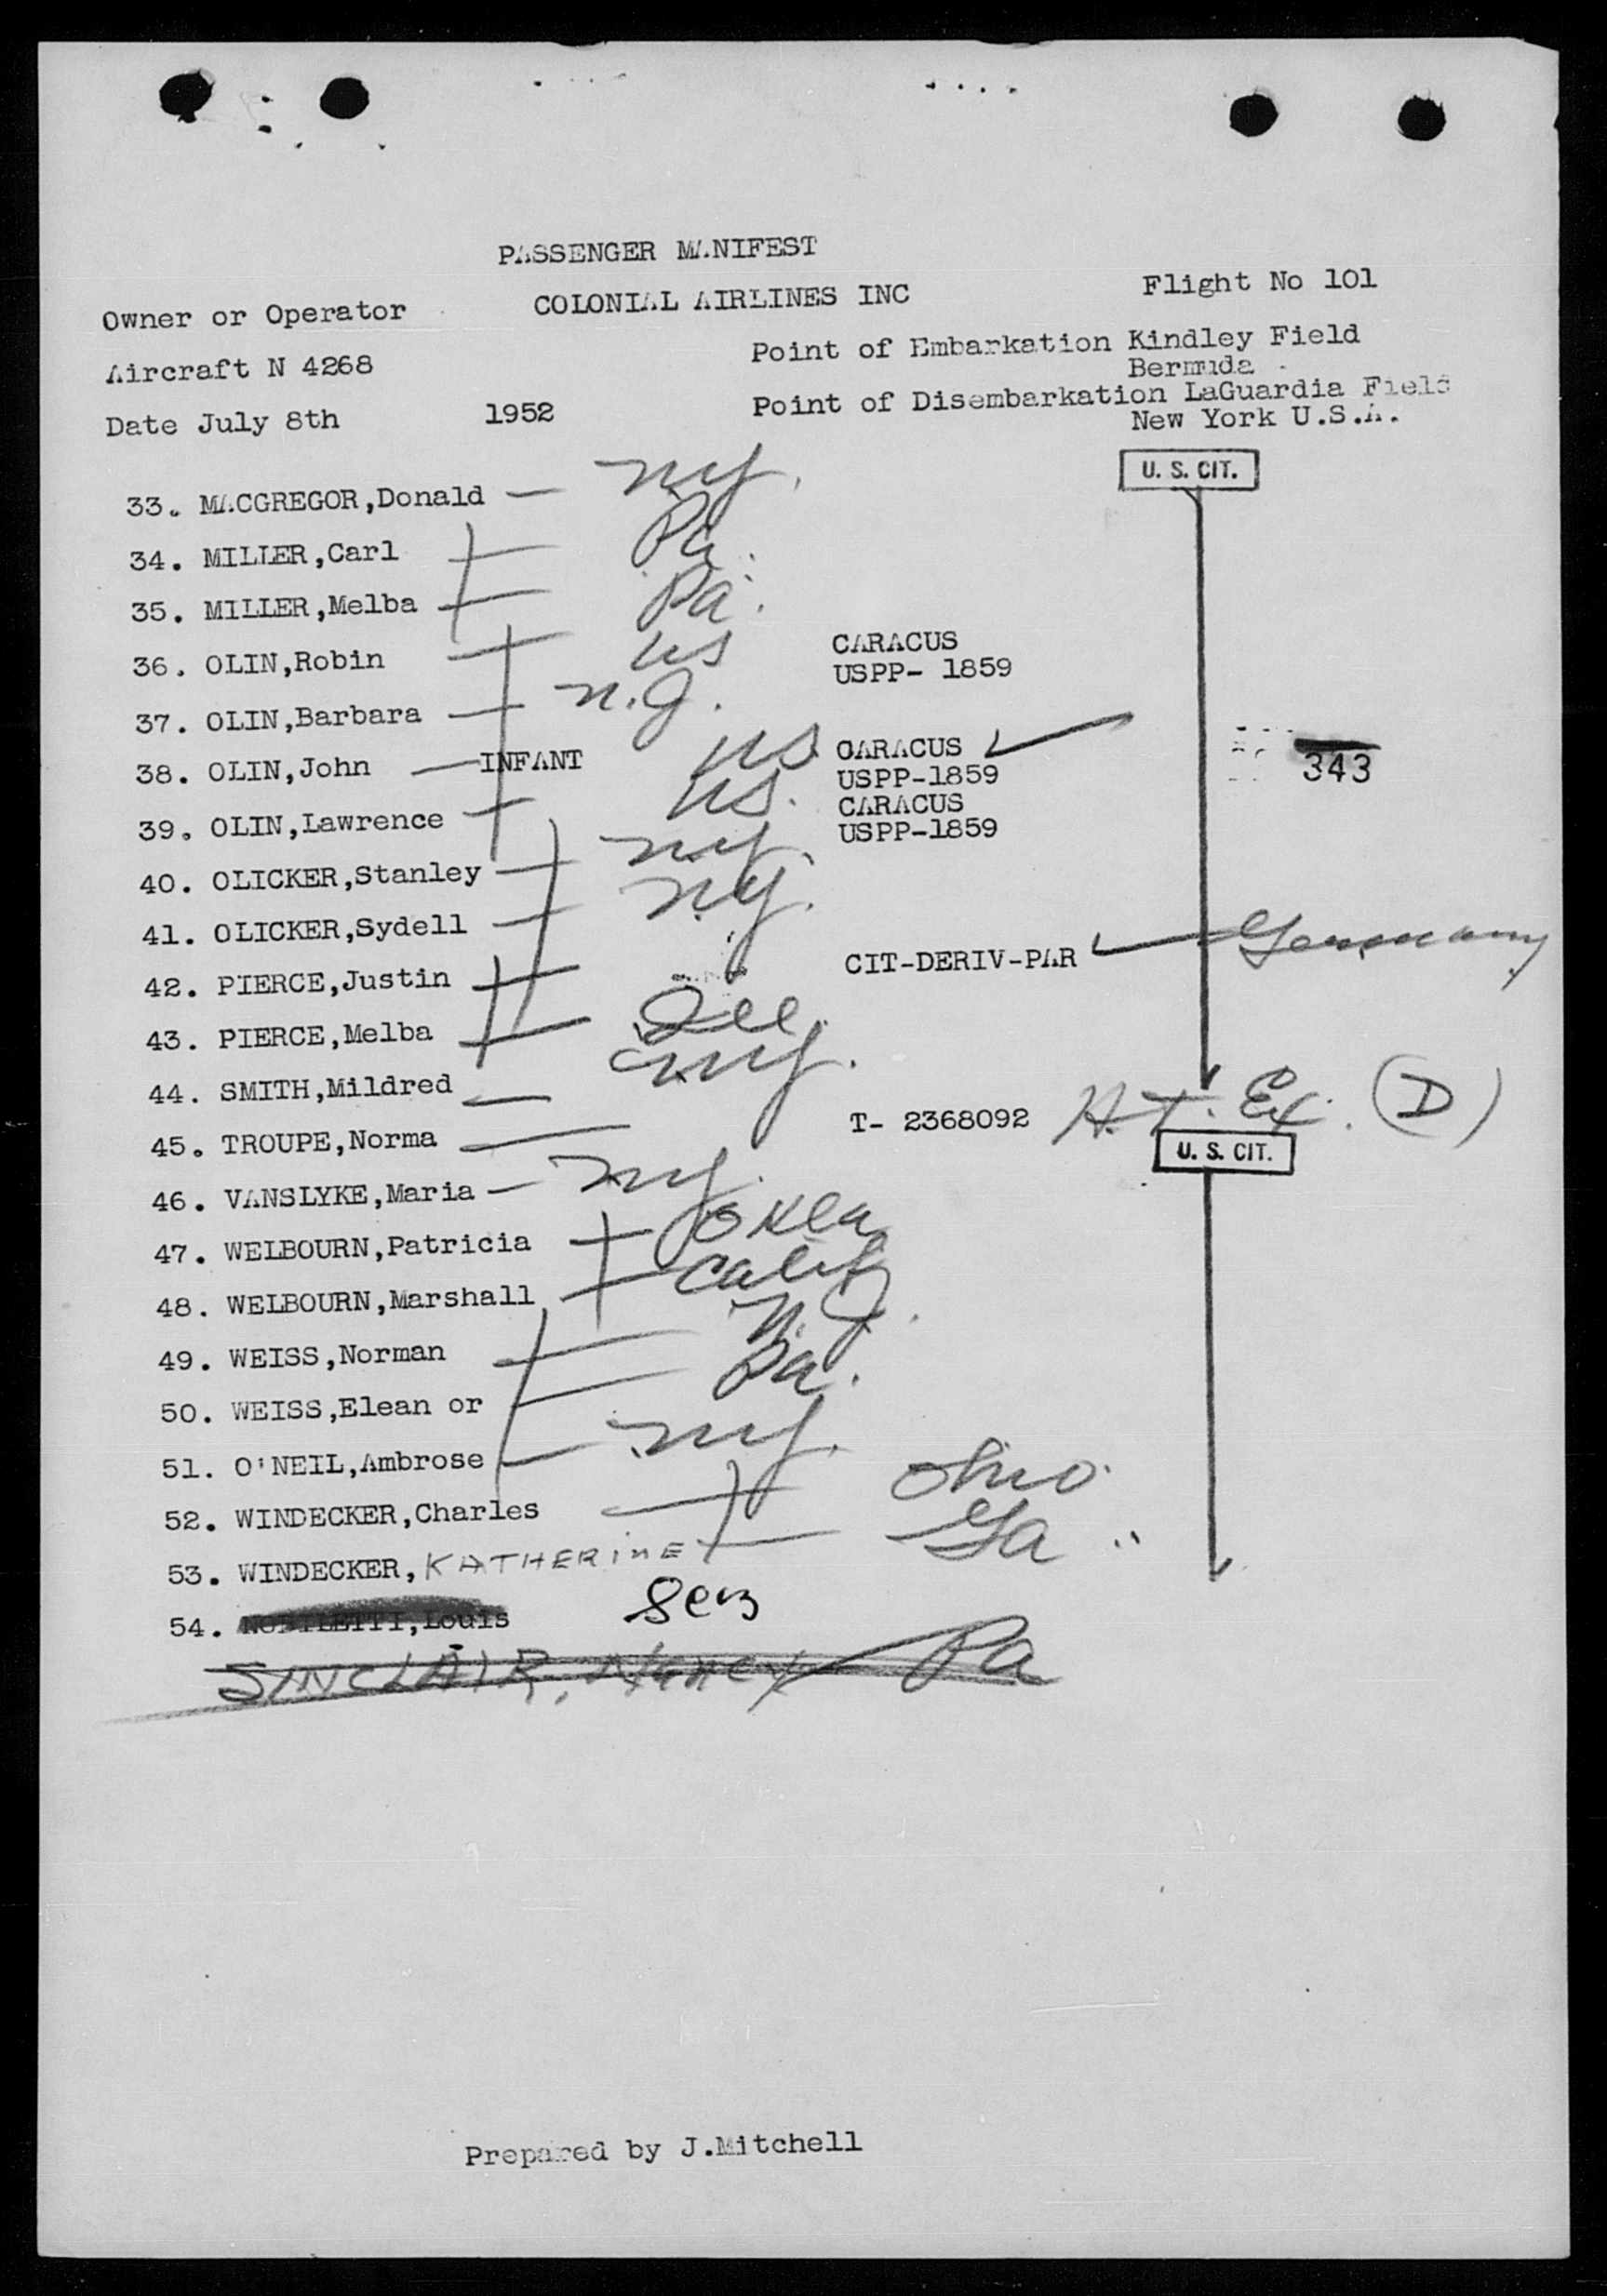 PASSENGER MANIFEST
Owner or Operator COLONIAL AIRLINES INC Flight No 101
Aircraft N 4268 Point of Embarkation Kindley Field
Bermuda
Date July 8th 1952 Point of Disembarkation LaGuardia Field
New York U.S.A.
U. S. CIT.
33. MACGREGOR,Donald — ny.
34. MILLER,Carl Pa.
35. MILLER,Melba Pa.
36. OLIN,Robin US CARACUS
USPP- 1859
37. OLIN,Barbara n.J.
38. OLIN,John — INFANT US CARACUS
USPP-1859
343
39. OLIN,Lawrence US. CARACUS
USPP-1859
40. OLICKER,Stanley ny.
41. OLICKER,Sydell n.y.
42. PIERCE,Justin CIT-DERIV-PAR Germany
43. PIERCE,Melba Ill.
44. SMITH,Mildred — ny.
45. TROUPE,Norma — T- 2368092 H.T. Ex. (D)
U. S. CIT.
46. VANSLYKE,Maria — ny.
47. WELBOURN,Patricia Okla
48. WELBOURN,Marshall Calif
49. WEISS,Norman N.J.
50. WEISS,Elean or Pa.
51. O'NEIL,Ambrose ny.
52. WINDECKER,Charles Ohio
53. WINDECKER, KATHERINE Ga
54. Louis
SINCLAIR, Nancy Pa
Prepared by J.Mitchell